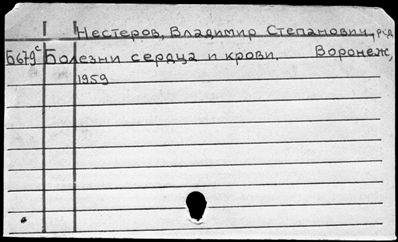 Нестеров, Владимир Степанович, ред.
Б679с Болезни сердца и крови. Воронеж,
1959